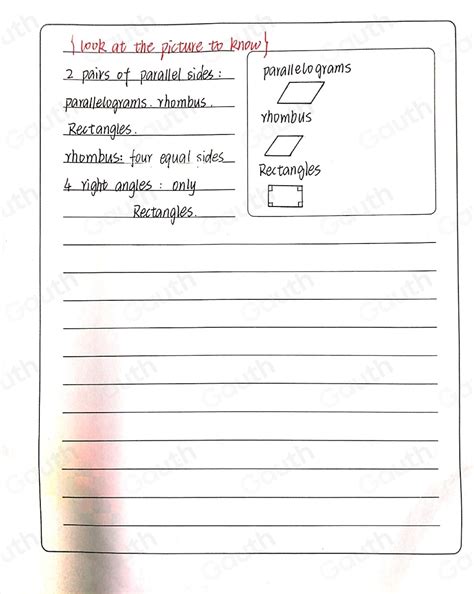 {look at the picture to know}
2 pairs of parallel sides:
parallelograms. rhombus.
Rectangles.
rhombus: four equal sides
4 right angles: only
Rectangles.
parallelograms
rhombus
Rectangles
Gauth